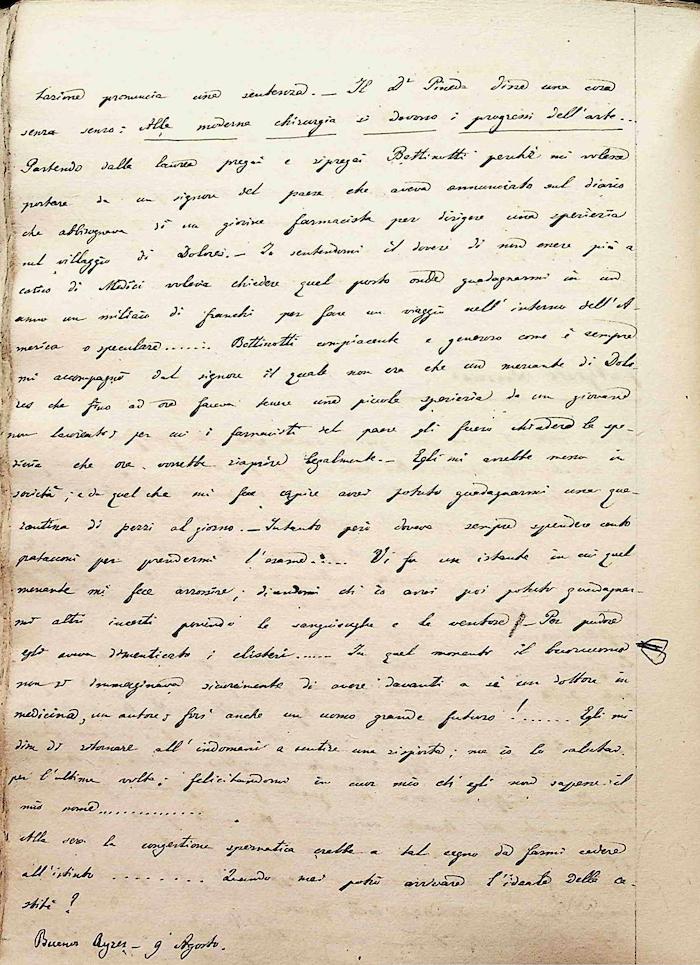 tazione pronuncia una sentenza. — Il Dr Pineda disse una cosa
senza senso: Alla moderna chirurgia si devono i progressi dell'arte...
Partendo dalla laurea pregai e ripregai Bettinotti perchè mi volesse
portare da un signore del paese che aveva annunciato sul diario
che abbisognava di un giovine farmacista per dirigere una spezieria
nel villaggio di Dolores. — Io sentendomi il dovere di non essere più a
carico di Medici voleva chiedere quel posto onde guadagnarmi in un
anno un migliaio di franchi per fare un viaggio nell'interno dell'A-
merica o speculare....... Bettinotti compiacente e generoso come è sempre
mi accompagnò dal signore il quale non era che un mercante di Dolo-
res che fino ad ora faceva tenere una piccola spezieria da un giovane
non laureato; per cui i farmacisti del paese gli fecero chiudere la spe-
zieria che ora vorrebbe riaprire legalmente. — Egli mi avrebbe messo in
società; e da quel che mi fece capire avrei potuto guadagnarmi una qua-
rantina di pezzi al giorno. — Intanto però doveva sempre spendere cento
patacconi per prendermi l'esame..... Vi fu un istante in cui quel
mercante mi fece arrossire; dicendomi ch'io avrei poi potuto guadagnar-
mi altri incerti ponendo le sanguisughe e le ventose! — Per pudore
egli aveva dimenticato i clisteri...... In quel momento il buon uomo
non s'immaginava sicuramente di avere davanti a sè un dottore in
medicina, un autore; fors'anche un uomo grande futuro!...... Egli mi
disse di ritornare all'indomani a sentire una risposta; ma io lo salutai
per l'ultima volta; felicitandomi in cuor mio ch'egli non sapesse il
mio nome.............
Alla sera la congestione spermatica crebbe a tal segno da farmi cedere
all'istinto......... Quando mai potrò arrivare l'ideale della ca-
stità?
Buenos Ayres — 9 Agosto.